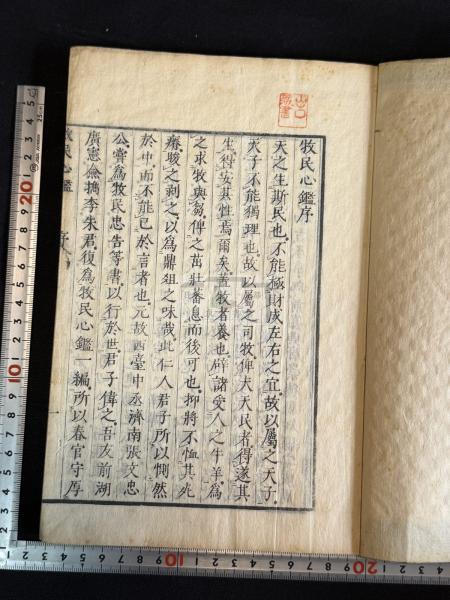 牧民心鑑序
天之生斯民也不能極財成左右之宜故以屬之天子
天子不能獨理也故以屬之司牧俾夫天民者得遂其
生得安其性焉爾矣蓋牧者養也辟諸受人之牛羊為
之求牧與芻俾之茁壯蕃息而後可也抑將不恤其
瘠駿之利之以為鼎俎之味哉此仁人君子所以惻然
於中而不能已於言者也元故西臺中丞濟南張文忠
公嘗為牧民忠告等書以行於世君子偉之吾友前湖
廣憲僉搗李朱君復為牧民心鑑一編所以春官守厚
牧民心鑑 序